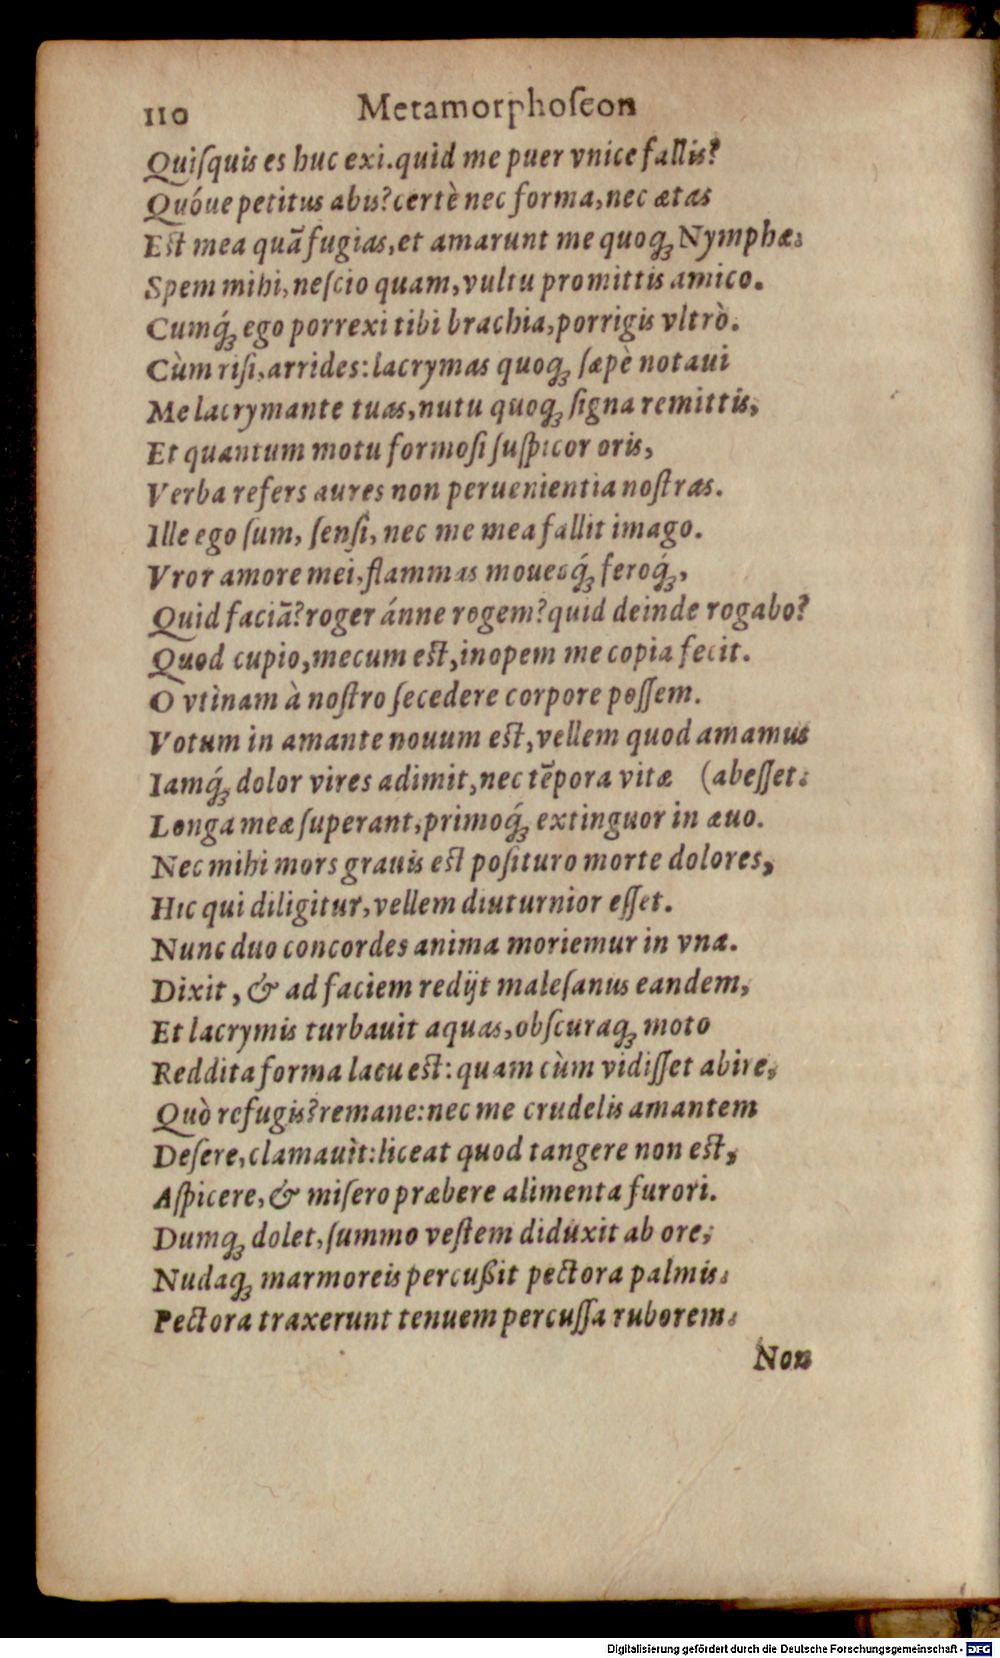 110 Metamorphoſeon
Quiſquis es huc exi.quid me puer vnice fallis?
Quóue petitus abis?certè nec forma,nec ætas
Est mea quã fugias,et amarunt me quoqꝫ Nymphæ:
Spem mihi,neſcio quam,vultu promittis amico.
Cumq́ꝫ ego porrexi tibi brachia,porrigis vltrò.
Cùm riſi,arrides:lacrymas quoqꝫ ſæpè notaui
Me lacrymante tuas,nutu quoqꝫ ſigna remittis,
Et quantum motu formoſi ſuſpicor oris,
Verba refers aures non peruenientia noſtras.
Ille ego ſum, ſenſi, nec me mea fallit imago.
Vror amore mei,flammas moueoq́ꝫ feroq́ꝫ,
Quid faciã?roger ánne rogem?quid deinde rogabo?
Quod cupio,mecum est,inopem me copia fecit.
O vtinam à noſtro ſecedere corpore poſſem.
Votum in amante nouum est,vellem quod amamus
Iamq́ꝫ dolor vires adimit,nec tẽpora vitæ (abeſſet:
Longa meæ ſuperant,primoq́ꝫ extinguor in æuo.
Nec mihi mors grauis est poſituro morte dolores,
Hic qui diligitur,vellem diuturnior eſſet.
Nunc duo concordes anima moriemur in vna.
Dixit, & ad faciem redijt maleſanus eandem,
Et lacrymis turbauit aquas,obſcuraqꝫ moto
Reddita forma lacu est:quam cùm vidiſſet abire,
Quò refugis?remane:nec me crudelis amantem
Deſere,clamauit:liceat quod tangere non est,
Aſpicere,& miſero præbere alimenta furori.
Dumqꝫ dolet,ſummo veſtem diduxit ab ore;
Nudaqꝫ marmoreis percußit pectora palmis:
Pectora traxerunt tenuem percuſſa ruborem:
Non
Digitalisierung gefördert durch die Deutsche Forschungsgemeinschaft - DFG